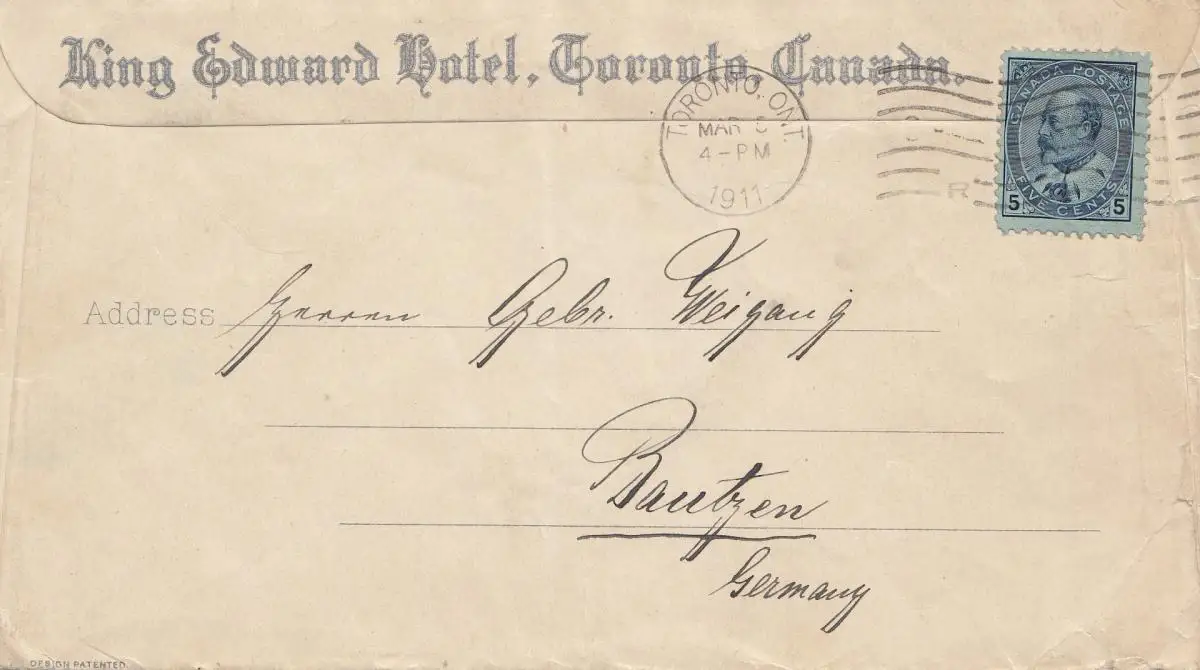 King Edward Hotel, Toronto, Canada.
TORONTO, ONT.
MAR 5
4-PM
1911
R
CANADA POSTAGE
FIVE CENTS
5 5
Address Herren Gebr. Weigang
Bautzen
Germany
DESIGN PATENTED.